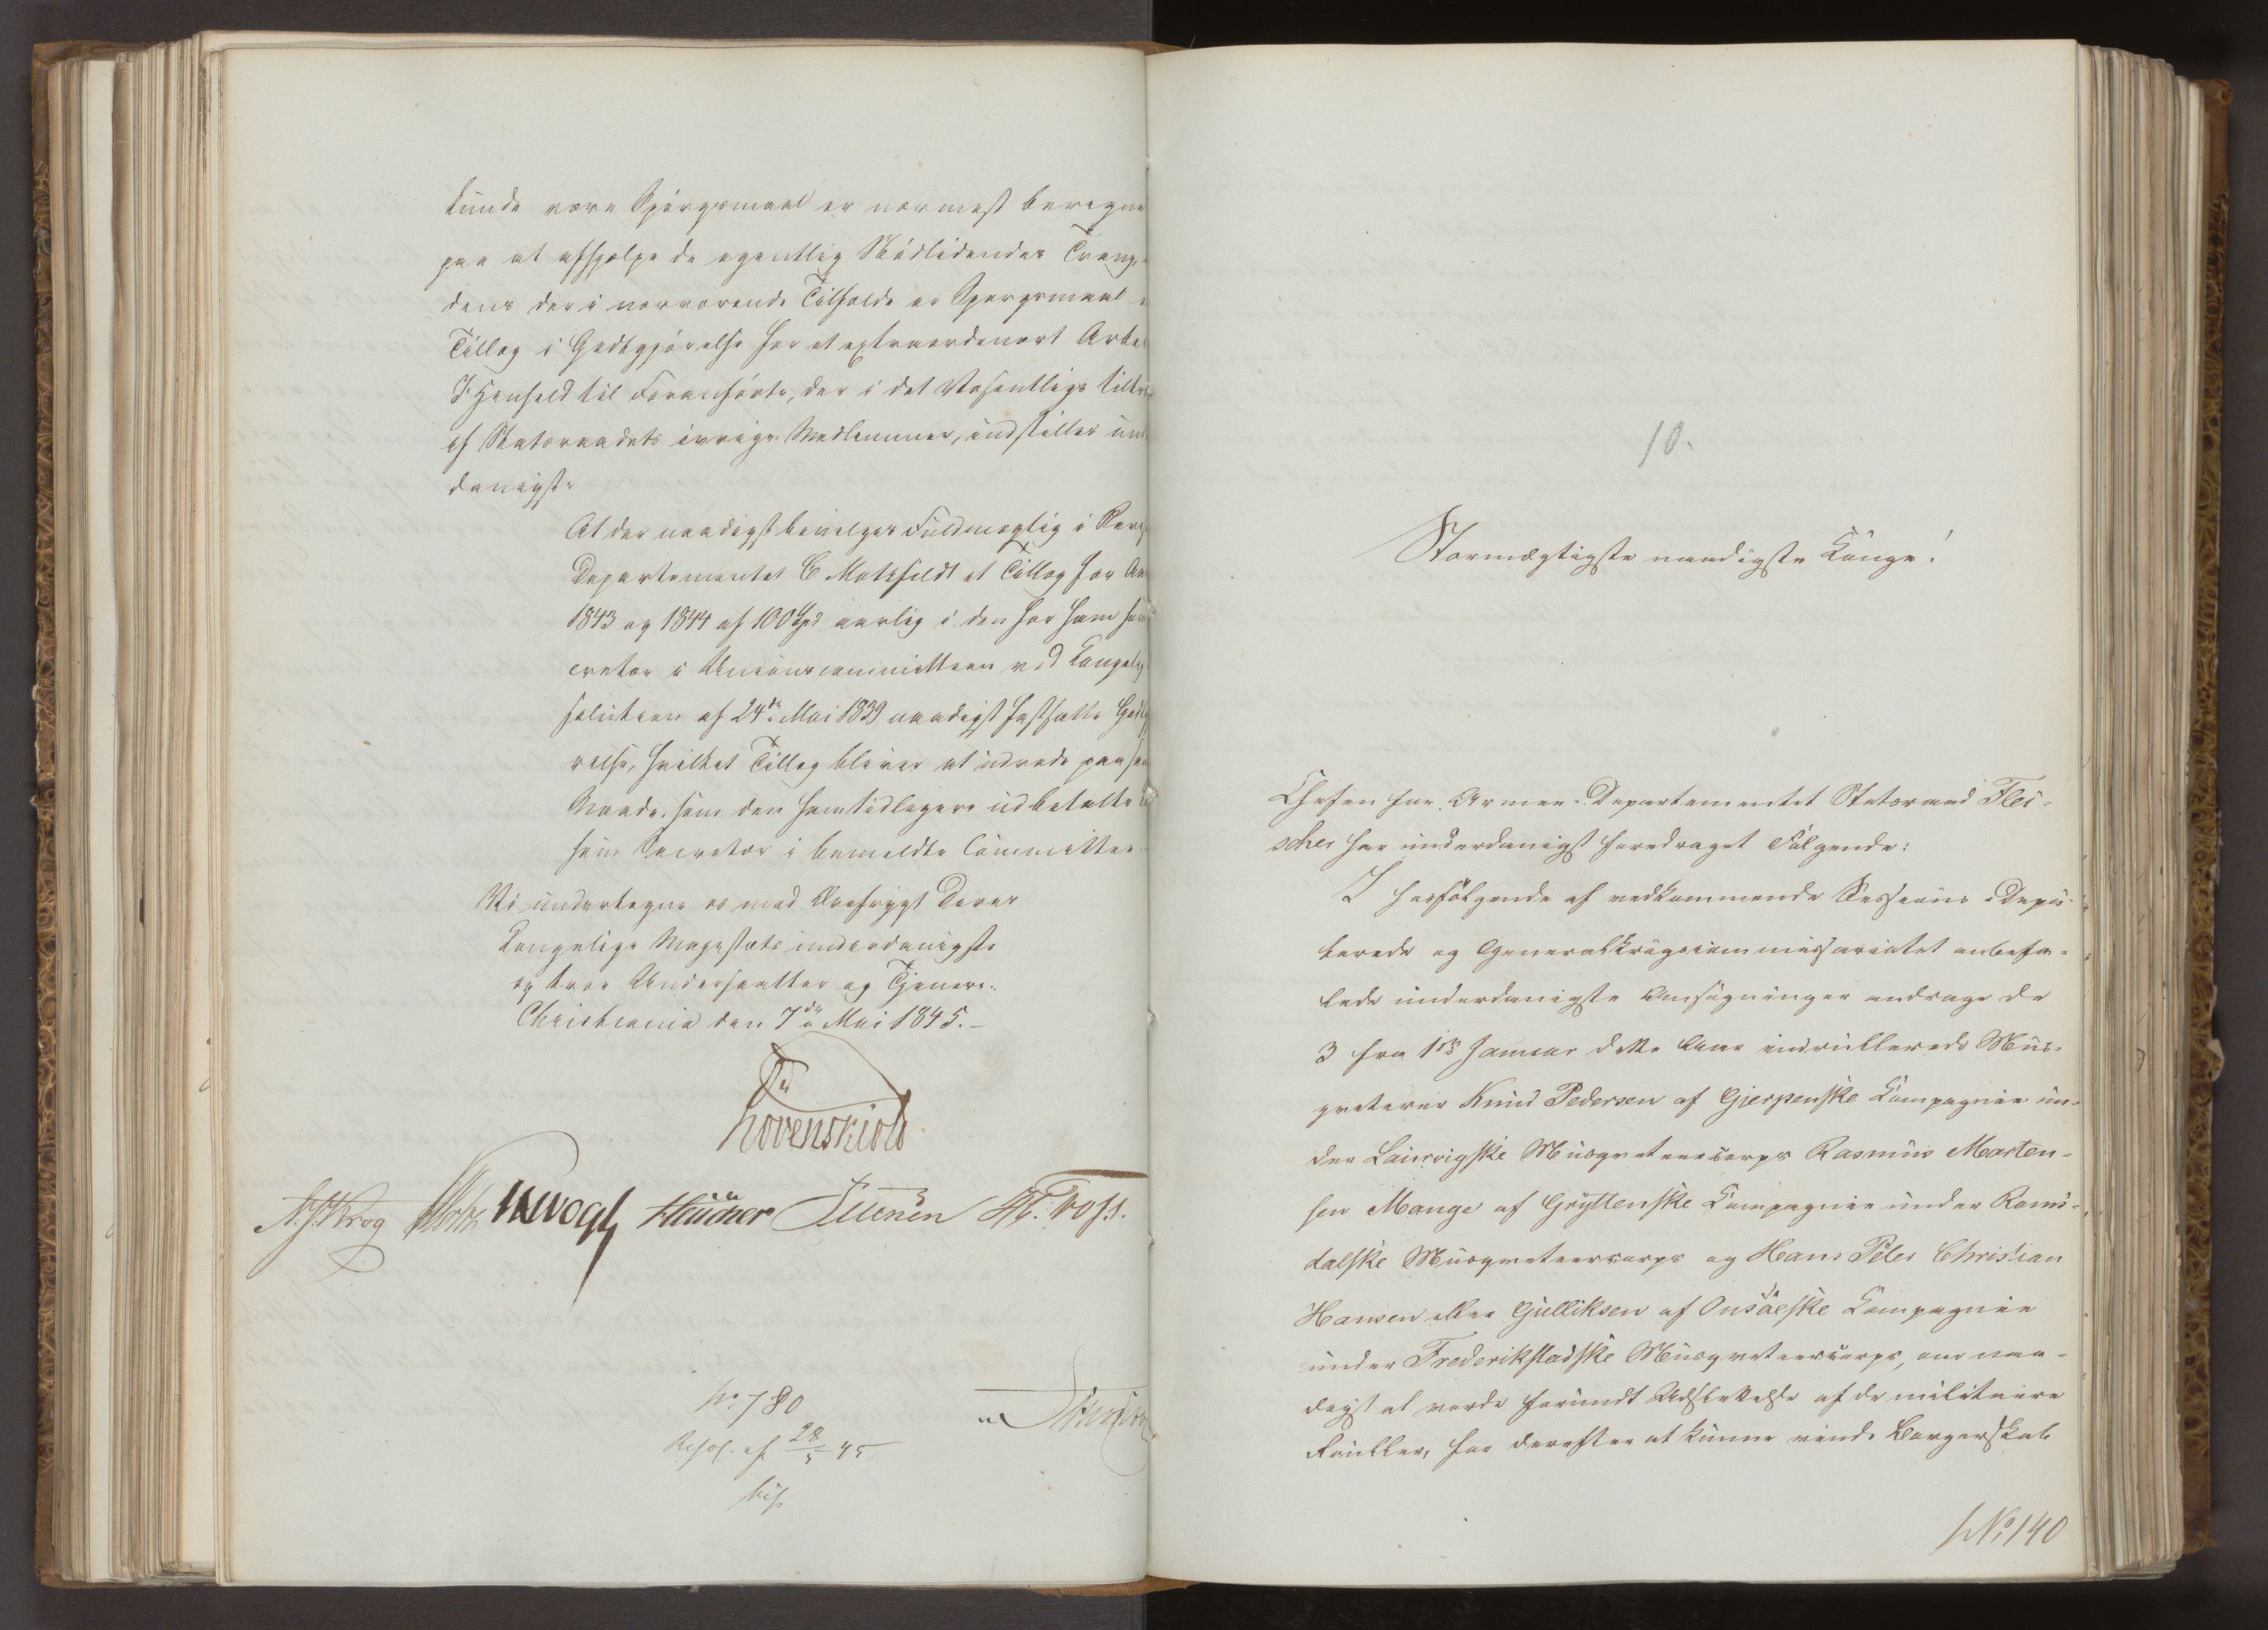 kunde være Spørgsmaal er nærmest beregne
paa at afhjælpe de egentlig Nødlidendes Trang,
dens der i nærværende Tilfælde er Spørgsmaal
Tillæg i Godtgjørelse for et extraordinært Arbei
I Henhold til Foranførte, der i det Væsentlige tiltræ
af Statsraadets øvrige Medlemmer, indstilles un
danigst:
At der naadigst bevilges Fuldmægtig i
Departementet C Motzfeldt et Tillæg for Aa
1843 og 1844 af 100 Spd aarlig i den for ham som
cretær i Unionscommitteen ved Kongelig
solution af 24de Mai 1839 naadigst fastsatte Godtg
relse, hvilket Tillæg bliver at udrede paa sam
Maade, som den ham tidligere udbetalte
som Secretær i bemeldte Committee.
Vi undertegne os med Ærefrygt Deres
Kongelige Majestæts underdanigste
og troe Undersaatter og Tjenere.
Christiania den 7de Mai 1845.
Løvenskiold
N. J. Krog Vogt Heidner Ihlen H. C. Foss.
No 780
Resol. af 28/5 45
10.
Stormægtigste naadigste Konge!
Chefen for Armee-Departementet Statsraad Flei-
scher har underdanigst foredraget Følgende:
I hosfølgende af vedkommende Sessions-Depu-
terede og Generalkrigscommissariatet anbefa-
lede underdanigste Ansøgninger andrage de
3 fra 1ste Januar dette Aar indrullerede Mus-
queterer Knud Pedersen af Gjerpenske Compagnie un-
der Laurvigske Musqueteercorps Rasmus Marten-
sen Mange af Gryttenske Compagnie under Roms-
dalske Musqueteercorps og Hans Peter Christian
Hansen eller Gulliksen af Onsøeske Compagnie
under Frederikstadske Musqueteercorps, om naa-
digst at vorde forundt Udslettelse af de militaire
Rouller, for derefter at kunne vinde Borgerskab
No 140